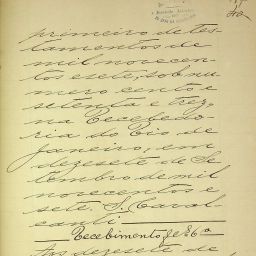 primeiro de tes
tamentos de
mil novecen
tos esete, sob nu
mero cento e
setenta e trez,
na Recebedo
ria do Rio de
Janeiro, em
dezesete de Se
tembro de mil
novecentos e
sete. S. Caval
canti
Recebimento
Aos dezesete de